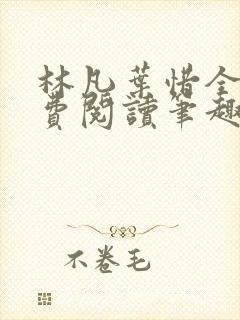 林凡葉惜全
費閱讀筆趣
不卷毛